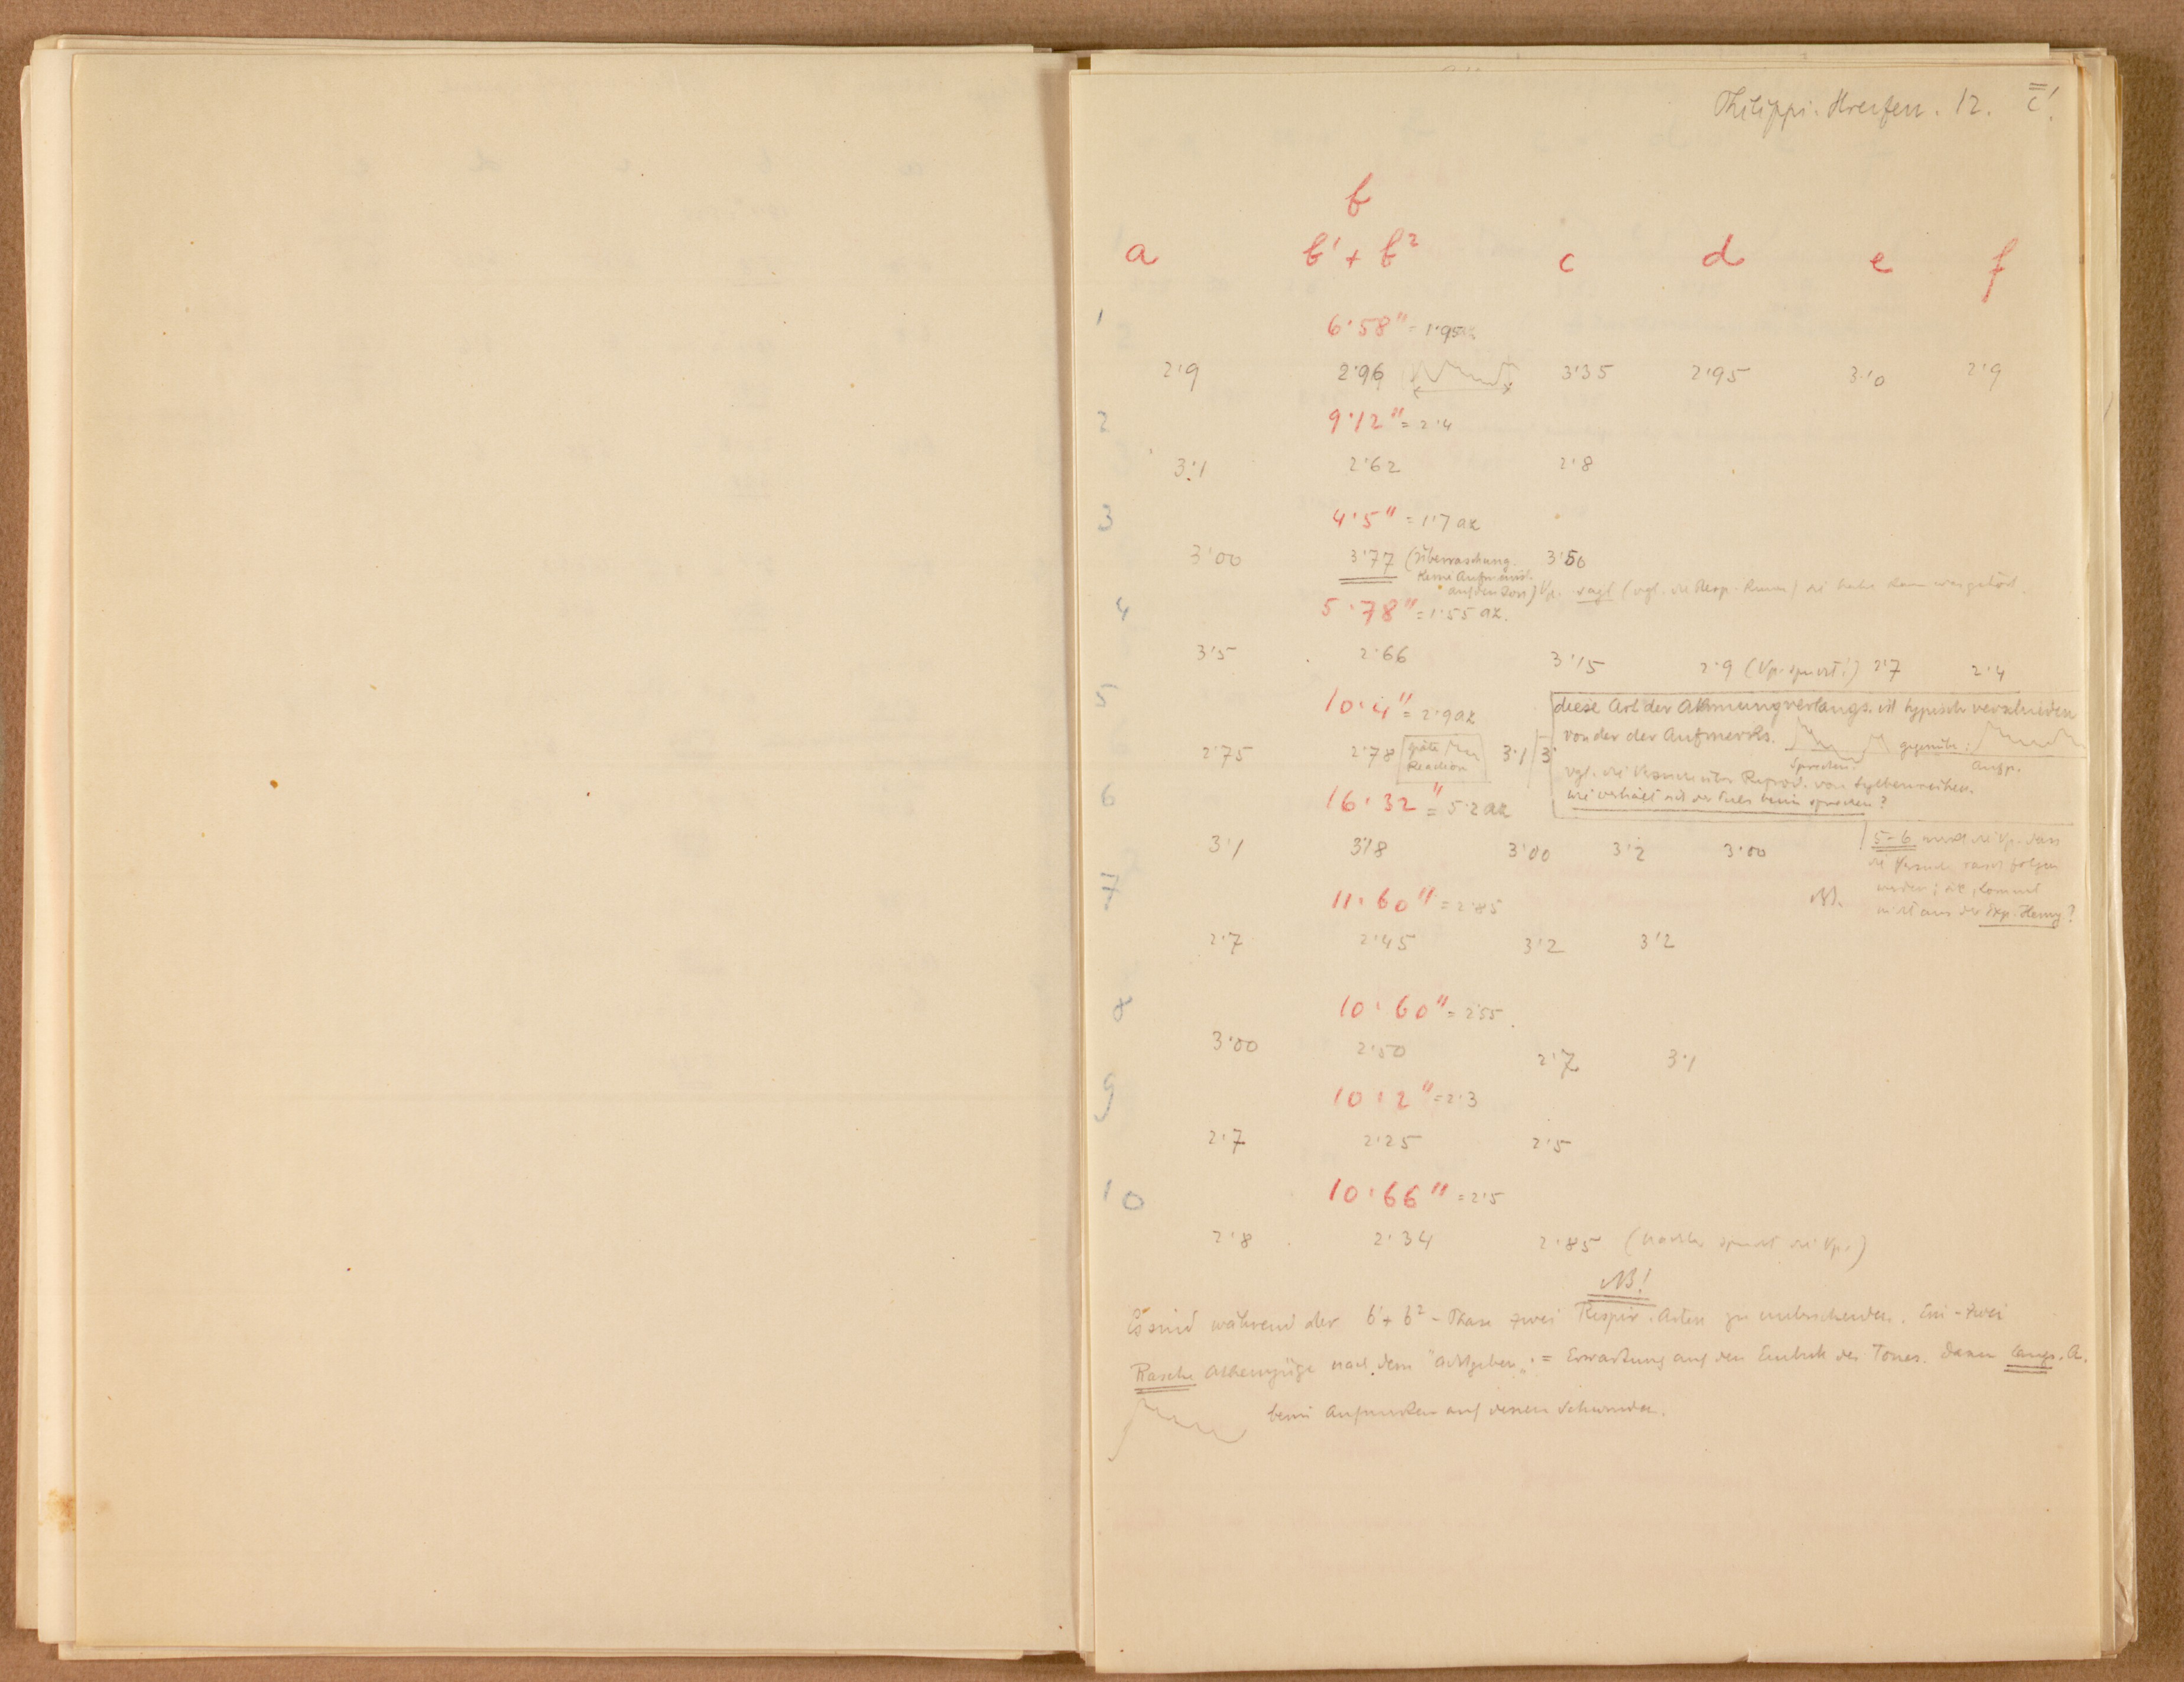 Philippi. Streifen. 12. c!
b
a b¹ + b² c d e f
1 6·58" = 1·95az
2·9 2·96 3·35 2·95 3·10 2·9
2 9·12" = 2·4
3·1 2·62 2·8
3 4·5" = 1·7 az
3·00 3·77 (Überraschung. 3·50
Keine Aufmerks.
auf den Ton) Vp. sagt (vgl. die Resp. Kurve) sie habe kaum was gehört.
4 5·78" = 1·55 az.
3·5 2·66 3·15 2·9 (Vp. spricht!) 2·7 2·4
5 10·4" = 2·9az
diese Art der Atmungverlangs. ist typisch verschieden
von der der Aufmerks. gegenüber:
Sprechen. Aufm.
2·75 2·78 späte Reaction 3·1 3·
vgl. die Versuche über Reprod. von Sylbenreihen.
wie verhält sich der Puls beim sprechen?
6 16·32" = 5·2 az
3·1 3·18 3·00 3·2 3·00
5–6 die Vp. dass
die Versuche rasch folgen
werden; sie kommt
NB. nicht aus der Exp.
7 11·60" = 2·85
2·7 2·45 3·2 3·2
8 10·60" = 2·55
3·00 2·50 2·7 3·1
9 10·2" = 2·3
2·7 2·25 2·5
10 10·66" = 2·5
2·8 2·34 2·85 (nachher spricht die Vp.)
NB!
Es sind während der b¹ + b² - Phase zwei Respir. Arten zu unterscheiden. Ein - zwei
Rasche Athemzüge nach dem "Achtgeben" = Erwartung auf den Eintritt des Tones. Dann langs. A.
beim Aufmerken auf dessen Schwinden.